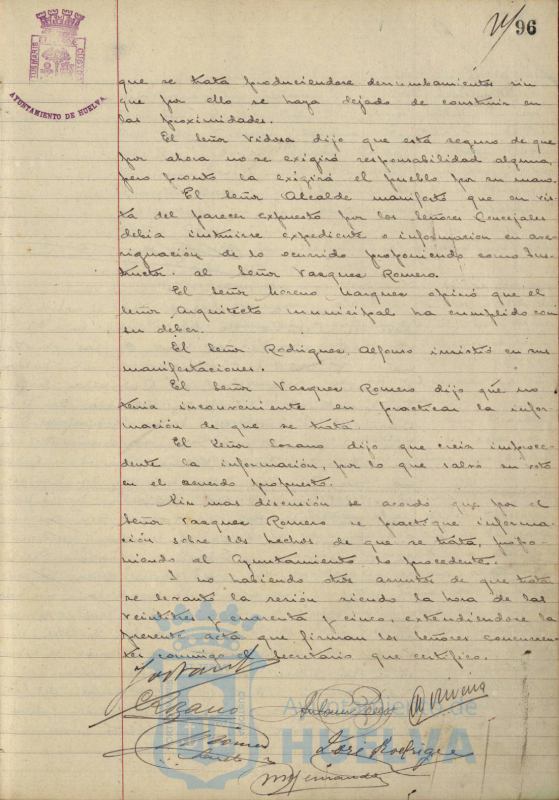 96
AYUNTAMIENTO DE HUELVA
que se trata produciendose derrumbamientos sin
que por ello se haya dejado de construir en
las proximidades.
El Señor Vidosa dijo que está seguro de que
por ahora no se exigirá responsabilidad alguna,
pero pronto la exigirá el pueblo por su mano.
El Señor Alcalde manifestó que en vis
ta del parecer expuesto por los Señores Concejales
debia instruirse expediente o informacion en ave
riguación de lo ocurrido proponiendo como Ins
tructor al Señor Vazquez Romero.
El Señor Moreno Marquez opinó que el
Señor Arquitecto municipal ha cumplido con
su deber.
El Señor Rodriguez Alfonso insistió en sus
manifestaciones.
El Señor Vazquez Romero dijo que no
tenia inconveniente en practicar la infor
mación de que se trata.
El Señor Lozano dijo que creia improce
dente la información, por lo que salvó su voto
en el acuerdo propuesto.
Sin mas discusión se acordó que por el
Señor Vazquez Romero se practique informa
ción sobre los hechos de que se trata, propo
niendo al Ayuntamiento lo procedente.
I no habiendo otros asuntos de que tratar
se levantó la sesión siendo la hora de las
veintitres y cuarenta y cinco, extendiéndose la
presente acta que firman los Señores concurren
tes conmigo el Secretario que certifico.
Lozano
José Rodriguez
M Hernandez
Ayuntamiento de
HUELVA